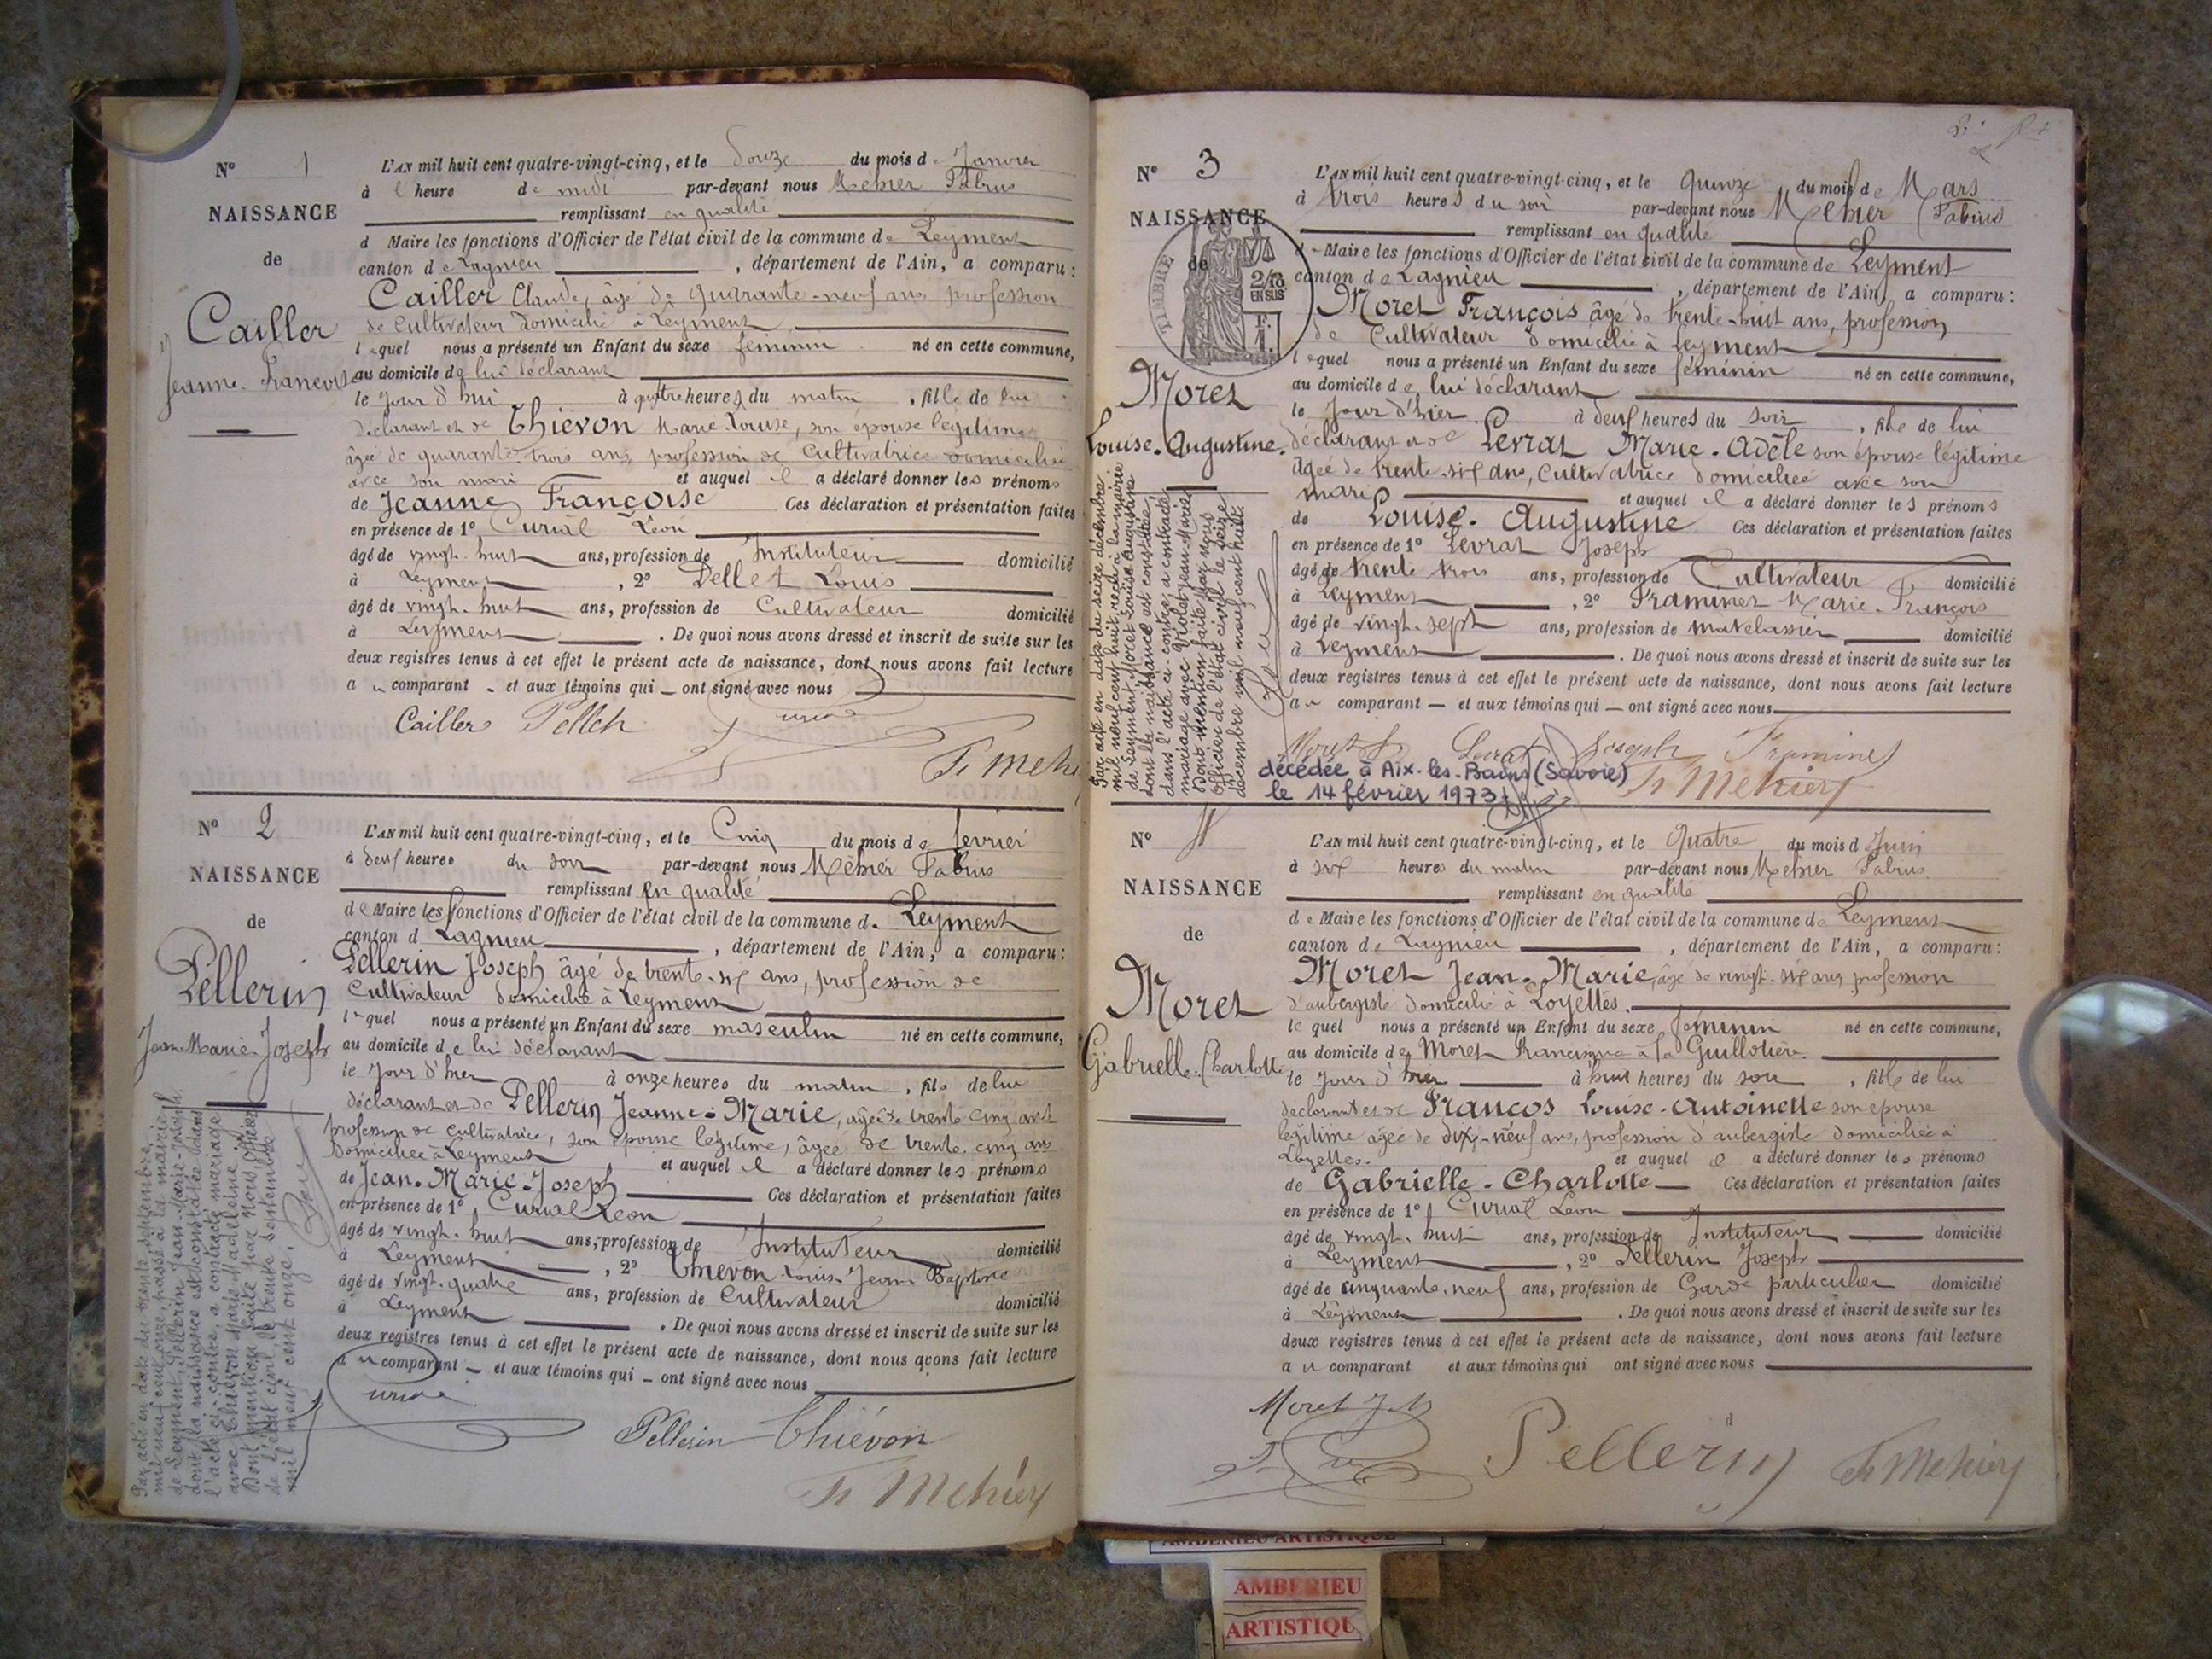 N° 1
NAISSANCE
de
Cailler
Jeanne-Francoise
L'AN mil huit cent quatre-vingt-cinq, et le Douze du mois de Janvier
à l'heure de midi par-devant nous Méhier Fabius
remplissant en qualité
de Maire les fonctions d'Officier de l'état civil de la commune de Leyment
canton de Lagnieu, département de l'Ain, a comparu :
Cailler Claude, âgé de quarante-neuf ans profession
de Cultivateur domicilié à Leyment
lequel nous a présenté un Enfant du sexe féminin né en cette commune,
au domicile de lui déclarant
le jour d'hui à quatre heures du matin, fille de lui
déclarant et de Thiévon Marie Louise, son épouse légitime
âgée de quarante-trois ans, profession de Cultivatrice domiciliée
avec son mari et auquel il a déclaré donner les prénoms
de Jeanne Françoise Ces déclaration et présentation faites
en présence de 1° Curial Léon
âgé de vingt-huit ans, profession de Instituteur domicilié
à Leyment, 2° Pellet Louis
âgé de vingt-huit ans, profession de Cultivateur domicilié
à Leyment. De quoi nous avons dressé et inscrit de suite sur les
deux registres tenus à cet effet le présent acte de naissance, dont nous avons fait lecture
au comparant et aux témoins qui ont signé avec nous
Cailler Pellet Curial
F. Mehier
N° 2
NAISSANCE
de
Pellerin
Jean-Marie-Joseph
Par acte en date du trente septembre
mil neuf cent onze, passé à la mairie
de Leyment, Pellerin Jean-Marie-Joseph
dont la naissance est constatée dans
l'acte ci-contre, a contracté mariage
avec Thiévon Marie Madeleine
Dont mention faite par Nous, officier
de l'état civil, le trente septembre
mil neuf cent onze.
L'AN mil huit cent quatre-vingt-cinq, et le Cinq du mois de fevrier
à deux heures du soir par-devant nous Méhier Fabius
remplissant en qualité
de Maire les fonctions d'Officier de l'état civil de la commune de Leyment
canton d Lagnieu, département de l'Ain, a comparu :
Pellerin Joseph âgé de trente-six ans, profession de
Cultivateur domicilié à Leyment
lequel nous a présenté un Enfant du sexe masculin né en cette commune,
au domicile de lui déclarant
le jour d'hier à onze heures du matin, fils de lui
déclarant et de Pellerin Jeanne-Marie, agée de trente cinq ans
profession de cultivatrice, son épouse légitime, âgée de trente-cinq ans
domiciliée à Leyment et auquel il a déclaré donner les prénoms
de Jean-Marie-Joseph Ces déclaration et présentation faites
en présence de 1° Curial Léon
âgé de vingt-huit ans, profession de Instituteur domicilié
à Leyment, 2° Thiévon Louis-Jean Baptiste
âgé de vingt-quatre ans, profession de Cultivateur domicilié
à Leyment. De quoi nous avons dressé et inscrit de suite sur les
deux registres tenus à cet effet le présent acte de naissance, dont nous avons fait lecture
au comparant et aux témoins qui ont signé avec nous
Curial
Pellerin Thiévon
F. Mehier
N° 3
NAISSANCE
de
TIMBRE
2/10
EN SUS
F.
1.
Moret
Louise-Augustine.
Par acte en date du seize décembre
mil neuf cent huit, reçu à la mairie
de Leyment, Moret Louise Augustine
dont la naissance est constatée,
dans l'acte ci-contre, a contracté
mariage avec Violet Jean-Marie
Dont mention faite par nous
officier de l'état civil le seize
décembre mil neuf cent huit.
L'AN mil huit cent quatre-vingt-cinq, et le quinze du mois de Mars
à trois heures du soir par-devant nous Méhier Fabius
remplissant en qualité
de Maire les fonctions d'Officier de l'état civil de la commune de Leyment
canton de Lagnieu, département de l'Ain, a comparu :
Moret François âgé de trente-huit ans, profession
de Cultivateur domicilié à Leyment
lequel nous a présenté un Enfant du sexe féminin né en cette commune,
au domicile de lui déclarant
le jour d'hier à deux heures du soir, fille de lui
déclarant et de Levrat Marie-Adèle son épouse légitime
âgée de trente-six ans, Cultivatrice domiciliée avec son
mari et auquel il a déclaré donner les prénoms
de Louise-Augustine Ces déclaration et présentation faites
en présence de 1° Levrat Joseph
âgé de trente trois ans, profession de Cultivateur domicilié
à Leyment, 2° Framinet Marie-François
âgé de vingt-sept ans, profession de matelassier domicilié
à Leyment. De quoi nous avons dressé et inscrit de suite sur les
deux registres tenus à cet effet le présent acte de naissance, dont nous avons fait lecture
au comparant et aux témoins qui ont signé avec nous
Moret Levrat Joseph Framinet
décédée à Aix-les-Bains (Savoie)
le 14 février 1973
F. Mehier
N° 4
NAISSANCE
de
Moret
Gabrielle-Charlotte
L'AN mil huit cent quatre-vingt-cinq, et le Quatre du mois d Juin
à six heures du matin par-devant nous Mehier Fabius
remplissant en qualité
de Maire les fonctions d'Officier de l'état civil de la commune de Leyment
canton de Lagnieu, département de l'Ain, a comparu :
Moret Jean-Marie, âgé de vingt-six ans, profession
d'aubergiste domicilié à Loyettes.
lequel nous a présenté un Enfant du sexe féminin né en cette commune,
au domicile de Moret à la Guillotière.
le jour d'hier à huit heures du soir, fille de lui
déclarant et de Francos Louise-Antoinette son épouse
légitime âgée de dix-neuf ans, profession d'aubergiste domiciliée à
Loyettes. et auquel il a déclaré donner les prénoms
de Gabrielle-Charlotte Ces déclaration et présentation faites
en présence de 1° Curial Léon
âgé de vingt-huit ans, profession de Instituteur domicilié
à Leyment, 2° Pellerin Joseph
âgé de cinquante-neuf ans, profession de Garde particulier domicilié
à Leyment. De quoi nous avons dressé et inscrit de suite sur les
deux registres tenus à cet effet le présent acte de naissance, dont nous avons fait lecture
au comparant et aux témoins qui ont signé avec nous
Moret J. M
Pellerin F. Mehier
AMBERIEU ARTISTIQUE
AMBERIEU
ARTISTIQU